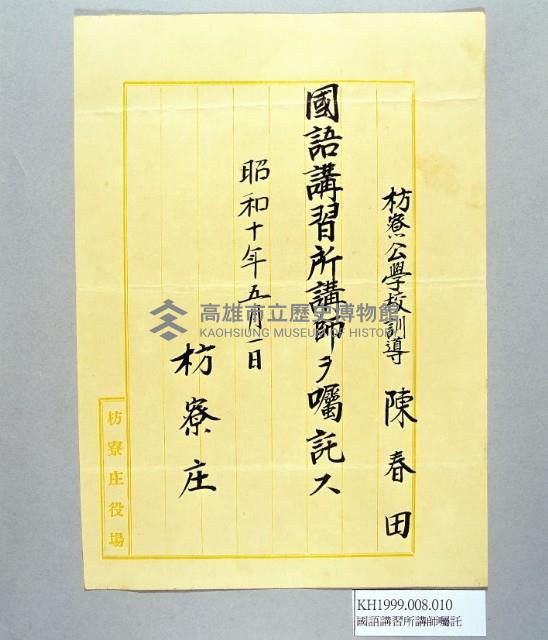 枋寮公學校訓導 陳春田
國語講習所講師ヲ囑託ス
昭和十年五月一日
枋寮庄
枋寮庄役場
高雄市立歷史博物館
KAOHSIUNG MUSEUM OF HISTORY
KH1999.008.010
國語講習所講師囑託